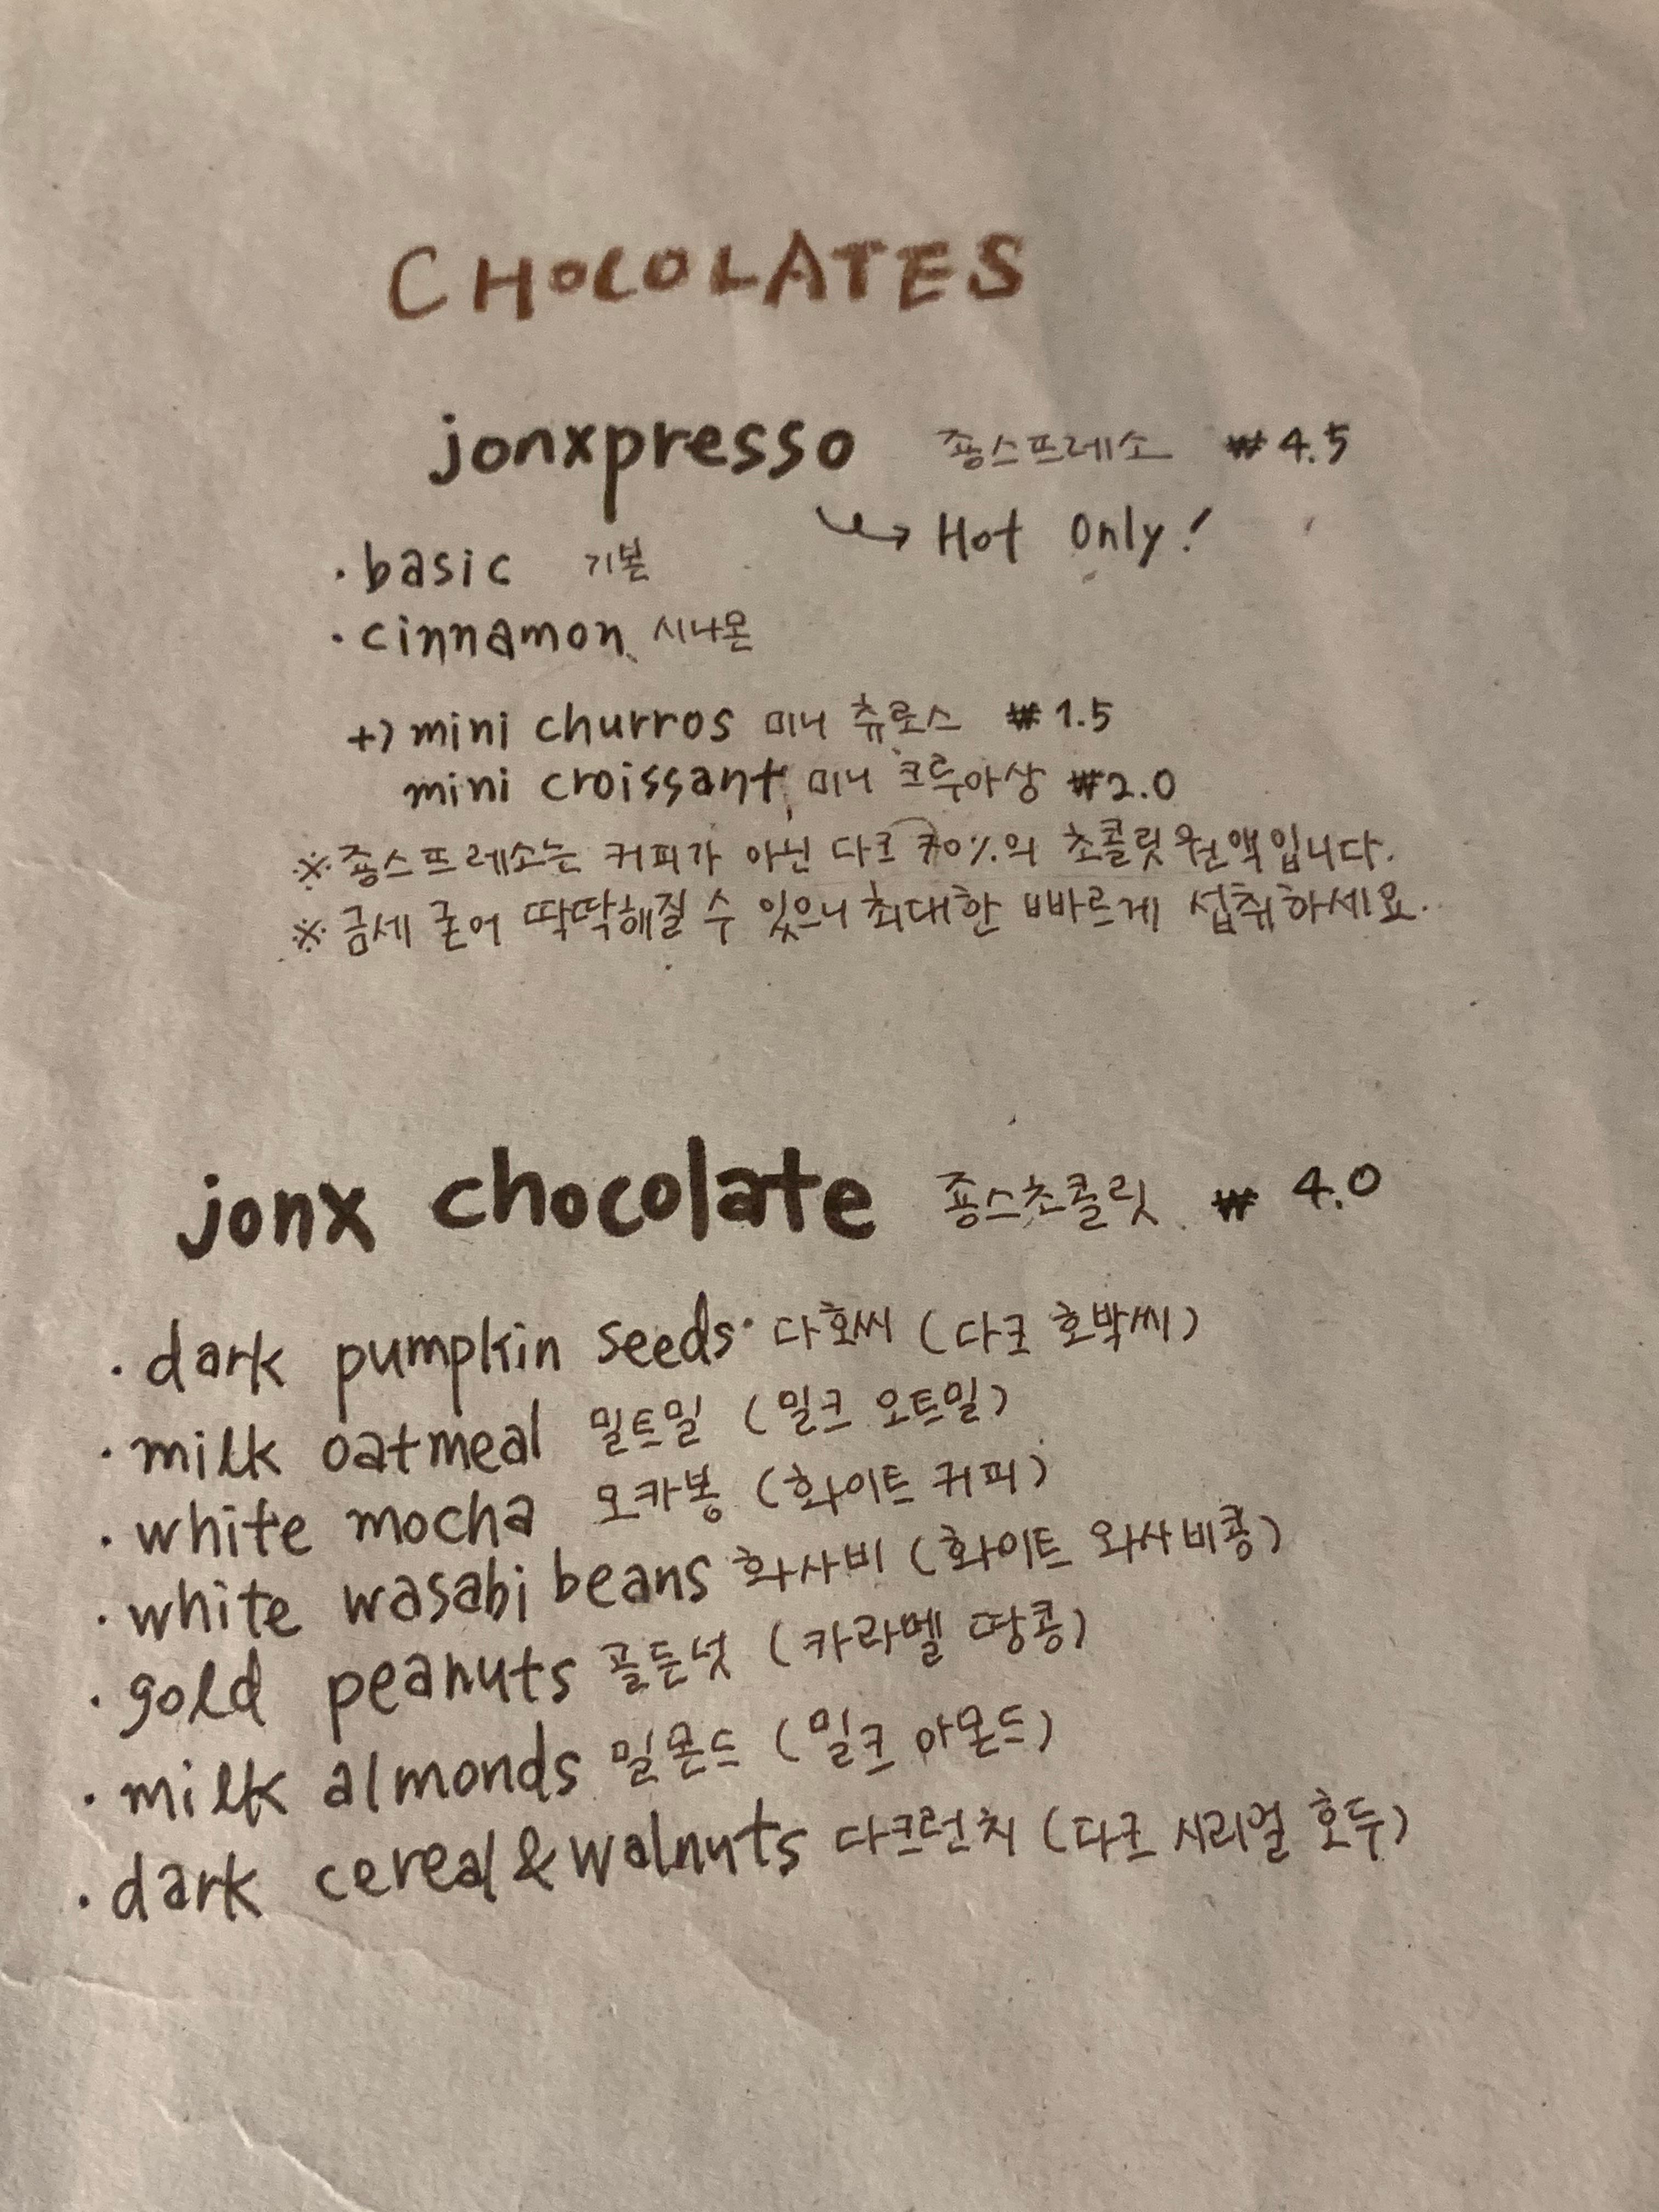 CHOCOLATES
jonxpresso 죵스프레소 ₩4.5
↪ Hot Only!
· basic 기본
· cinnamon 시나몬
+) mini churros 미니 츄로스 ₩1.5
mini croissant 미니 크루아상 ₩2.0
※ 죵스프레소는 커피가 아닌 다크 70%의 초콜릿 원액입니다.
※ 금세 굳어 딱딱해질 수 있으니 최대한 빠르게 섭취하세요.
jonx chocolate 죵스초콜릿 ₩ 4.0
· dark pumpkin seeds 다호씨 (다크 호박씨)
· milk oatmeal 밀트밀 (밀크 오트밀)
· white mocha 모카봉 (화이트 커피)
· white wasabi beans 화사비 (화이트 와사비콩)
· gold peanuts 골든넛 (카라멜 땅콩)
· milk almonds 밀몬드 (밀크 아몬드)
· dark cereal & walnuts 다크런치 (다크 시리얼 호두)